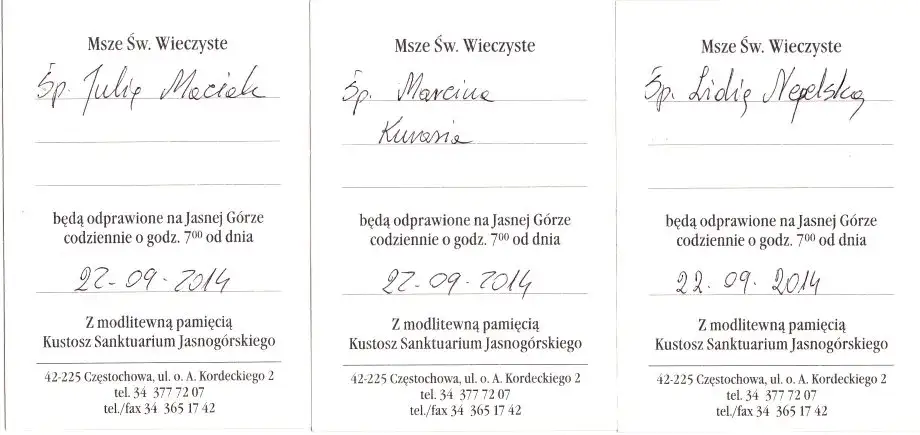 Msze Św. Wieczyste
Śp. Julię Maciak
będą odprawione na Jasnej Górze
codziennie o godz. 7⁰⁰ od dnia
22-09-2014
Z modlitewną pamięcią
Kustosz Sanktuarium Jasnogórskiego
42-225 Częstochowa, ul. o. A. Kordeckiego 2
tel. 34 377 72 07
tel./fax 34 365 17 42
Msze Św. Wieczyste
Śp. Marcina
Kurasia
będą odprawione na Jasnej Górze
codziennie o godz. 7⁰⁰ od dnia
22-09-2014
Z modlitewną pamięcią
Kustosz Sanktuarium Jasnogórskiego
42-225 Częstochowa, ul. o. A. Kordeckiego 2
tel. 34 377 72 07
tel./fax 34 365 17 42
Msze Św. Wieczyste
Śp. Lidię Nepelską
będą odprawione na Jasnej Górze
codziennie o godz. 7⁰⁰ od dnia
22.09.2014
Z modlitewną pamięcią
Kustosz Sanktuarium Jasnogórskiego
42-225 Częstochowa, ul. o. A. Kordeckiego 2
tel. 34 377 72 07
tel./fax 34 365 17 42